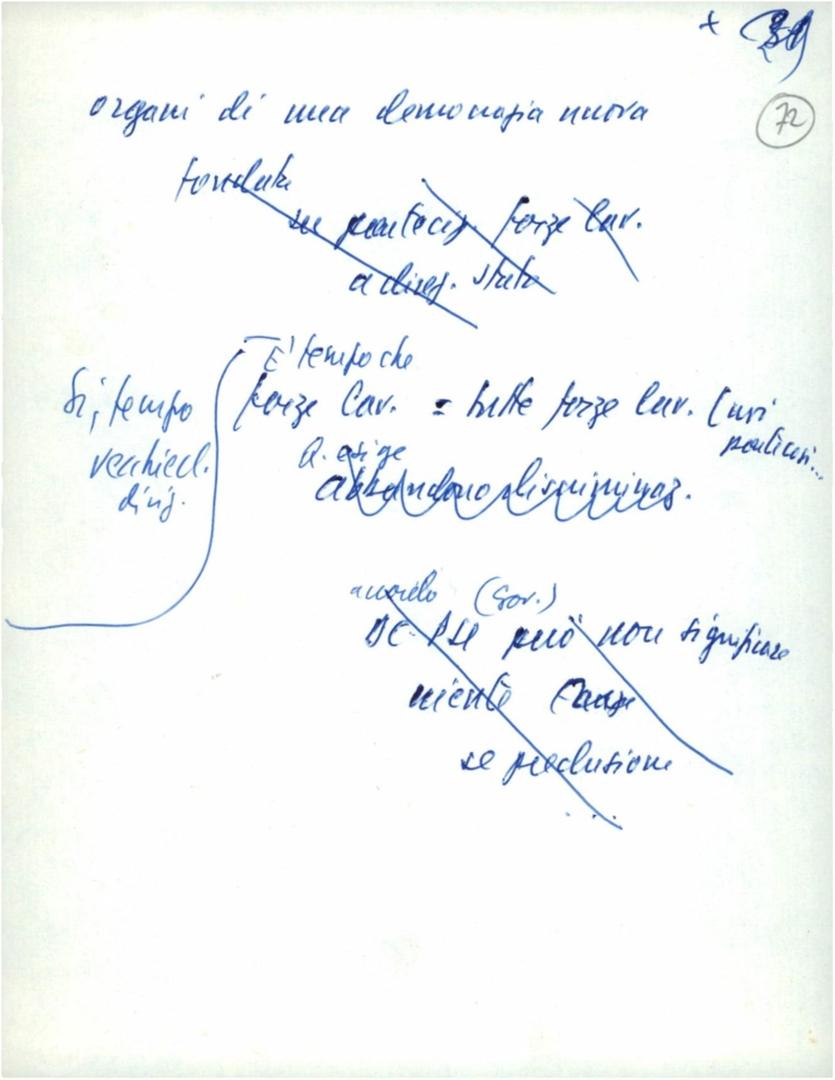 +
72
organi di una democrazia nuova
fondata
su partecip. forze lav.
a direz. stato
E' tempo che
Sì, tempo
forze lav. = tutte forze lav. (noi
vecchie cl.
dirig.
Q. esige
abbandono discriminaz.
accordo (Gov.)
DC-PSI può non significare
niente
se preclusione
...